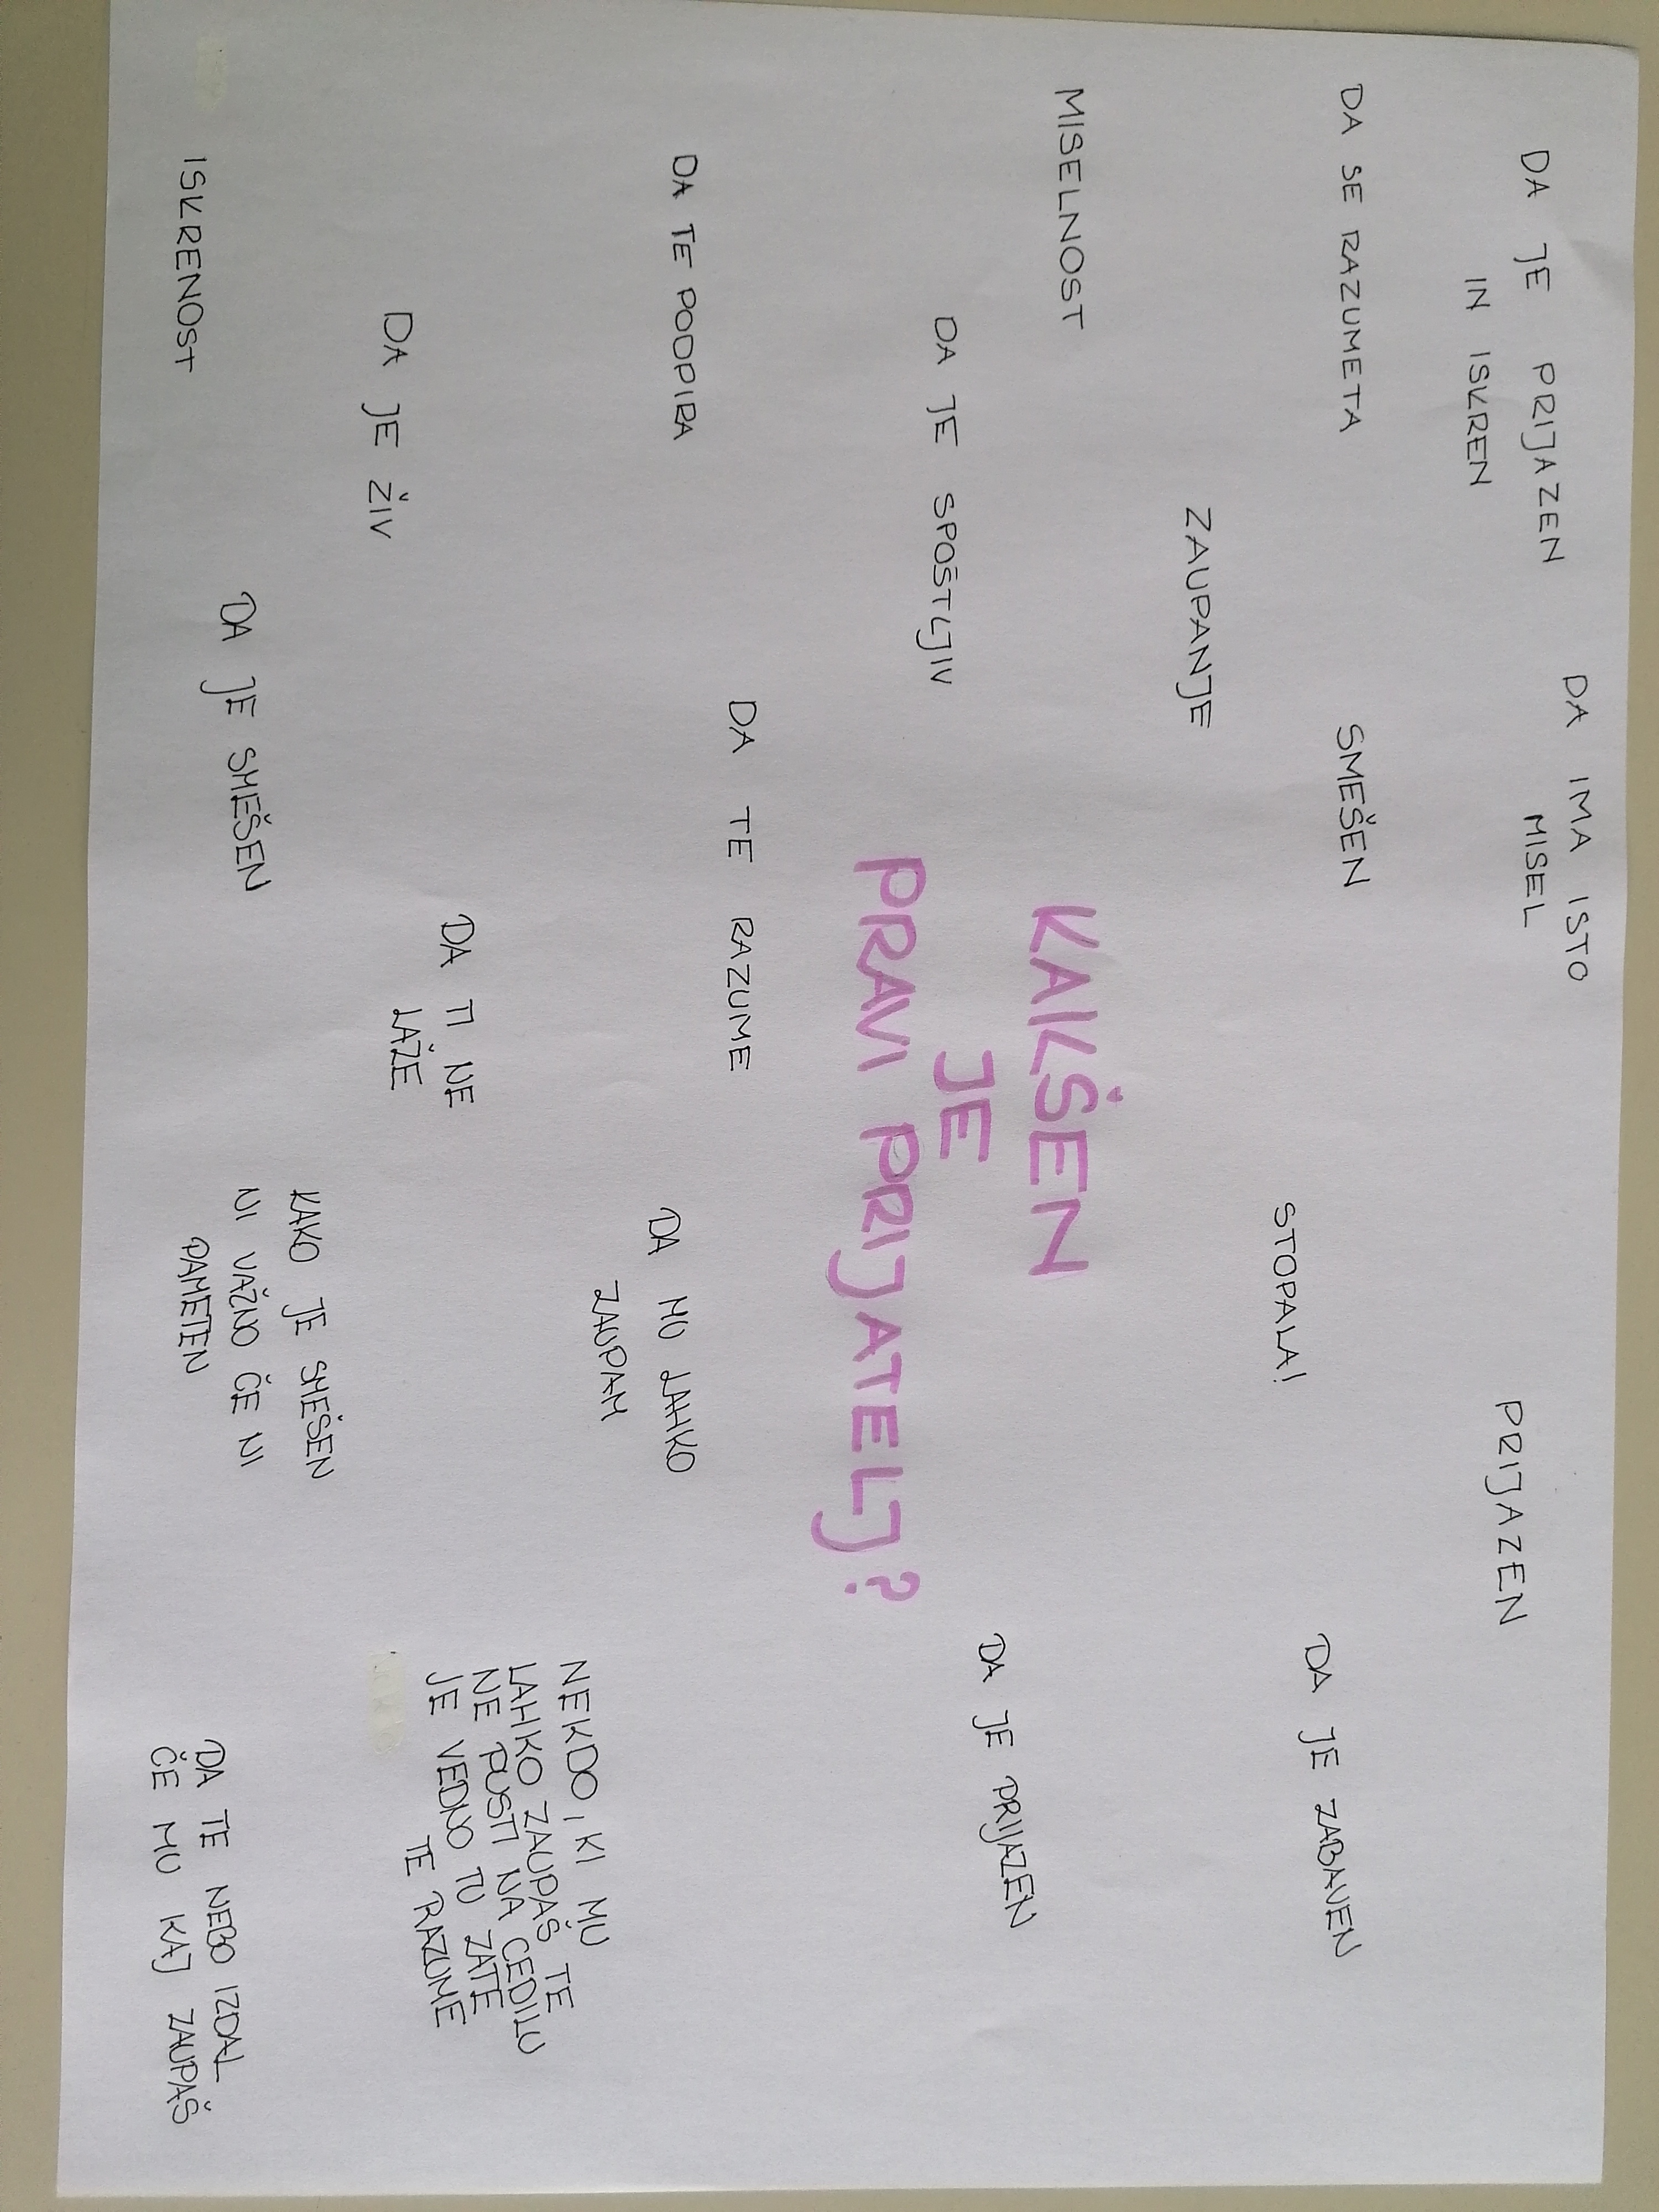 DA JE PRIJAZEN
IN ISKREN
DA IMA ISTO
MISEL
PRIJAZEN
DA SE RAZUMETA
SMEŠEN
STOPALA!
DA JE ZABAVEN
ZAUPANJE
MISELNOST
KAKŠEN
JE
PRAVI PRIJATELJ?
DA JE PRIJAZEN
DA JE SPOŠTLJIV
DA TE RAZUME
DA TE PODPIRA
DA MU LAHKO
ZAUPAM
NEKDO, KI MU
LAHKO ZAUPAŠ TE
NE PUSTI NA CEDILU
JE VEDNO TU ZATE
TE RAZUME
DA TI NE
LAŽE
DA JE ŽIV
KAKO JE SMEŠEN
NI VAŽNO ČE NI
PAMETEN
DA JE SMEŠEN
ISKRENOST
DA TE NEBO IZDAL
ČE MU KAJ ZAUPAŠ